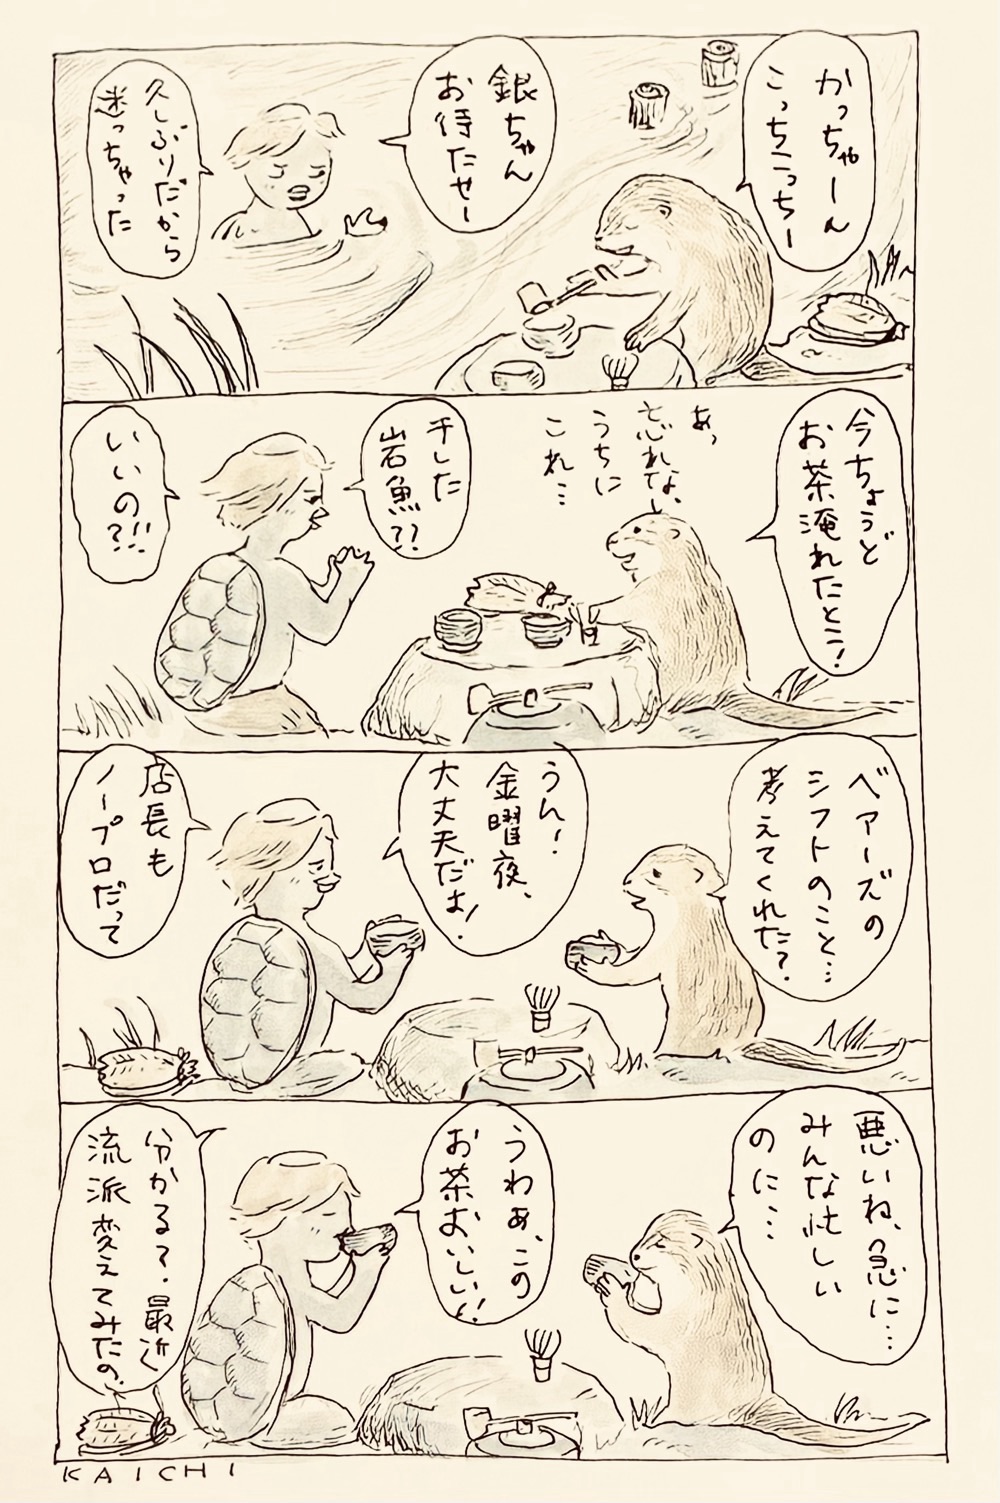 かっちゃーん
こっちこっちー
銀ちゃん
お待たせー
久しぶりだから
迷っちゃった
今ちょうど
お茶淹れたとこ!
あっ
忘れな、
うちに
これ…
干した
岩魚??
いいの?!!
ベアーズの
シフトのこと…
考えてくれた?
うん!
金曜夜、
大丈夫だよ!
店長も
ノープロだって
悪いね、急に…
みんな忙しい
のに…
うわぁ、この
お茶おいしい!
分かる?最近
流派変えてみたの
KAICHI